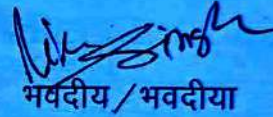 Singh
भवदीय / भवदीया